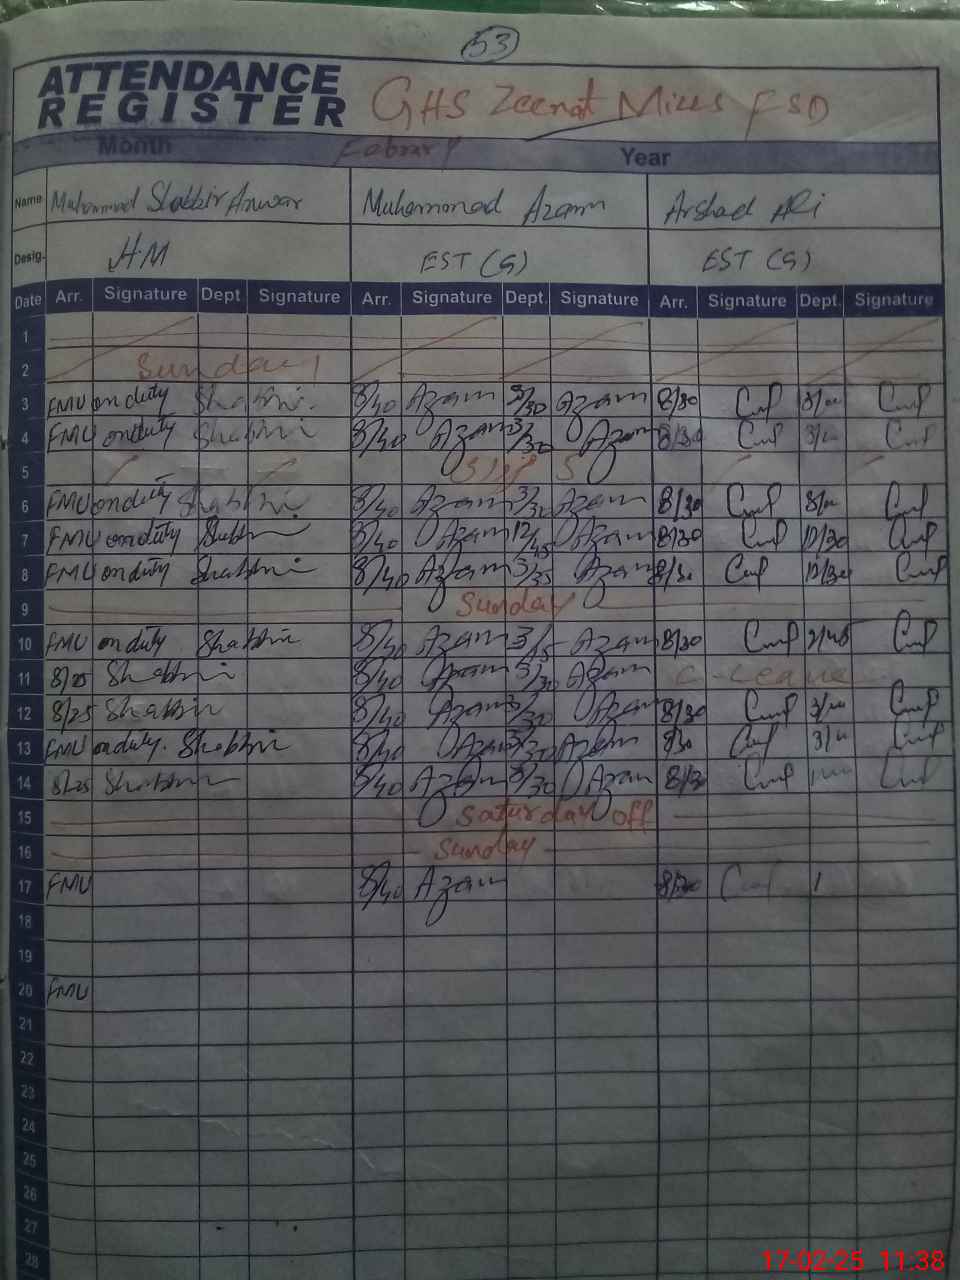 53
ATTENDANCE
REGISTER GHS Zeenat Mills FSD
Month Febrary Year
Name Muhammad Shabbir Anwar Muhammad Azam Arshad Ali
Desig. H.M EST (G) EST (G)
Date Arr. Signature Dept Signature Arr. Signature Dept. Signature Arr. Signature Dept. Signature
1
2 Sunday
3 FMU on duty Shabbir 8/40 Azam 3/30 Azam 8/30
4 FMU on duty Shabbir 8/40 Azam 3/30 Azam 8/30
5
6 FMU on duty Shabbir 8/40 Azam 3/30 Azam 8/30
7 FMU on duty Shabbir 8/40 Azam 12/45 Azam 8/30 12/30
8 FMU on duty Shabbir 8/40 Azam 3/35 Azam 8/30 12/30
9 Sunday
10 FMU on duty Shabbir 8/40 Azam 3/15 Azam 8/30 2/45
11 8/25 Shabbir 8/40 Azam 3/30 Azam C-Leave
12 8/25 Shabbir 8/40 Azam 3/30 Azam 8/30
13 FMU on duty. Shabbir 8/40 Azam 3/30 Azam 8/30
14 8/25 Shabbir 8/40 Azam 3/30 Azam 8/30
15 Saturday off
16 Sunday
17 FMU 8/40 Azam 8/30
18
19
20 FMU
21
22
23
24
25
26
27
28
17-02-25 11:38